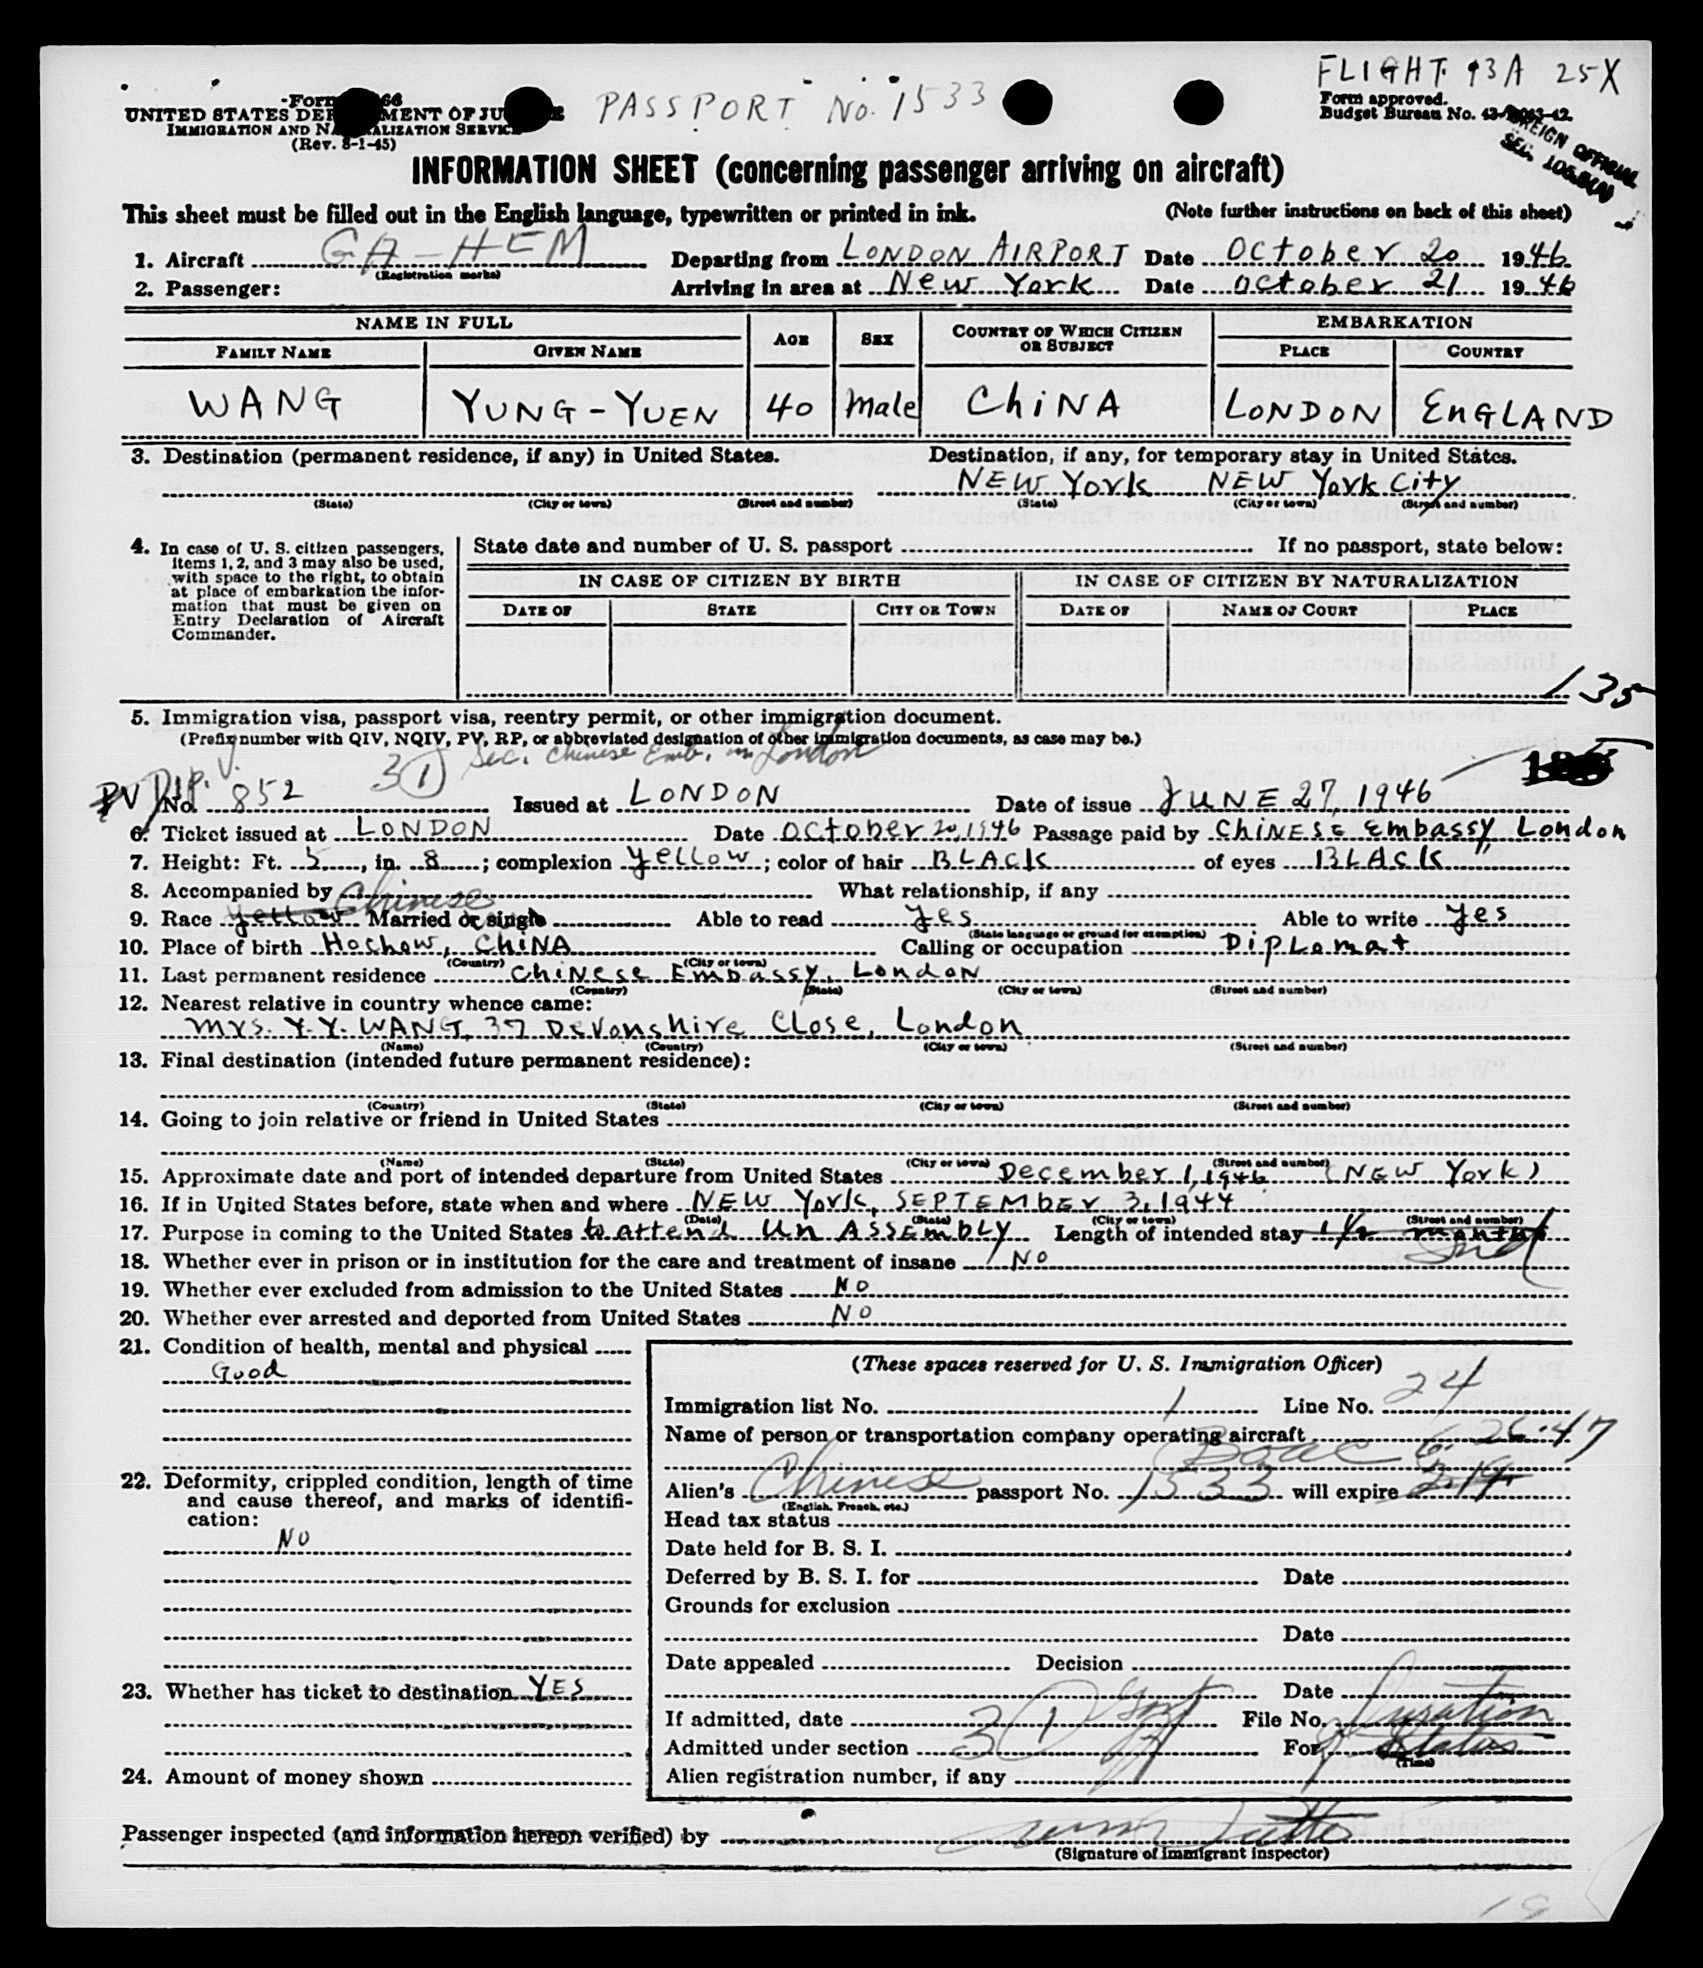 FLIGHT 93A 25X
PASSPORT No. 1533
Form 66
UNITED STATES DEPARTMENT OF JUSTICE
IMMIGRATION AND NATURALIZATION SERVICE
(Rev. 8-1-45)
Form approved.
Budget Bureau No. 43-
FOREIGN OFFICIAL
SEC.
INFORMATION SHEET (concerning passenger arriving on aircraft)
This sheet must be filled out in the English language, typewritten or printed in ink. (Note further instructions on back of this sheet)
1. Aircraft GA-HEM Departing from LONDON AIRPORT Date October 20 1946
(Registration marks)
2. Passenger: Arriving in area at New York Date October 21 1946
NAME IN FULL AGE SEX COUNTRY OF WHICH CITIZEN OR SUBJECT EMBARKATION
FAMILY NAME GIVEN NAME PLACE COUNTRY
WANG YUNG-YUEN 40 Male CHINA LONDON ENGLAND
3. Destination (permanent residence, if any) in United States. Destination, if any, for temporary stay in United States.
NEW York NEW York City
(State) (City or town) (Street and number) (State) (City or town) (Street and number)
4. In case of U. S. citizen passengers, items 1, 2, and 3 may also be used, with space to the right, to obtain at place of embarkation the information that must be given on Entry Declaration of Aircraft Commander.
State date and number of U. S. passport If no passport, state below:
IN CASE OF CITIZEN BY BIRTH IN CASE OF CITIZEN BY NATURALIZATION
DATE OF STATE CITY OR TOWN DATE OF NAME OF COURT PLACE
135
5. Immigration visa, passport visa, reentry permit, or other immigration document.
(Prefix number with QIV, NQIV, PV, RP, or abbreviated designation of other immigration documents, as case may be.)
3(1) Sec. Chinese Emb. in London
PV Dip. V. No. 852 Issued at LONDON Date of issue JUNE 27, 1946
6. Ticket issued at LONDON Date October 20, 1946 Passage paid by CHINESE Embassy, London
7. Height: Ft. 5, in. 8; complexion yellow; color of hair BLACK of eyes BLACK
8. Accompanied by What relationship, if any
9. Race yellow Chinese Married or single Able to read yes Able to write yes
(State language or ground for exemption)
10. Place of birth Hochow, CHINA Calling or occupation Diplomat
(Country) (City or town)
11. Last permanent residence Chinese Embassy, London
(Country) (State) (City or town) (Street and number)
12. Nearest relative in country whence came:
Mrs. Y.Y. WANG, 37 Devonshire Close, London
(Name) (Country) (City or town) (Street and number)
13. Final destination (intended future permanent residence):
(Country) (State) (City or town) (Street and number)
14. Going to join relative or friend in United States
(Name) (State) (City or town) (Street and number)
15. Approximate date and port of intended departure from United States December 1, 1946 (NEW York)
16. If in United States before, state when and where NEW York, SEPTEMBER 3, 1944
(Date) (State) (City or town) (Street and number)
17. Purpose in coming to the United States to attend UN ASSEMBLY Length of intended stay 1½ months
18. Whether ever in prison or in institution for the care and treatment of insane NO
19. Whether ever excluded from admission to the United States NO
20. Whether ever arrested and deported from United States NO
21. Condition of health, mental and physical
Good
22. Deformity, crippled condition, length of time and cause thereof, and marks of identification:
NO
23. Whether has ticket to destination YES
24. Amount of money shown
(These spaces reserved for U. S. Immigration Officer)
Immigration list No. 1 Line No. 24
Name of person or transportation company operating aircraft
BOAC 6-26-47
Alien's Chinese passport No. 1533 will expire
(English, French, etc.)
Head tax status
Date held for B. S. I.
Deferred by B. S. I. for Date
Grounds for exclusion
Date
Date appealed Decision
Date
If admitted, date File No. Duration
Admitted under section 3(1) For of Status
(Time)
Alien registration number, if any
Passenger inspected (and information hereon verified) by
(Signature of Immigrant Inspector)
19